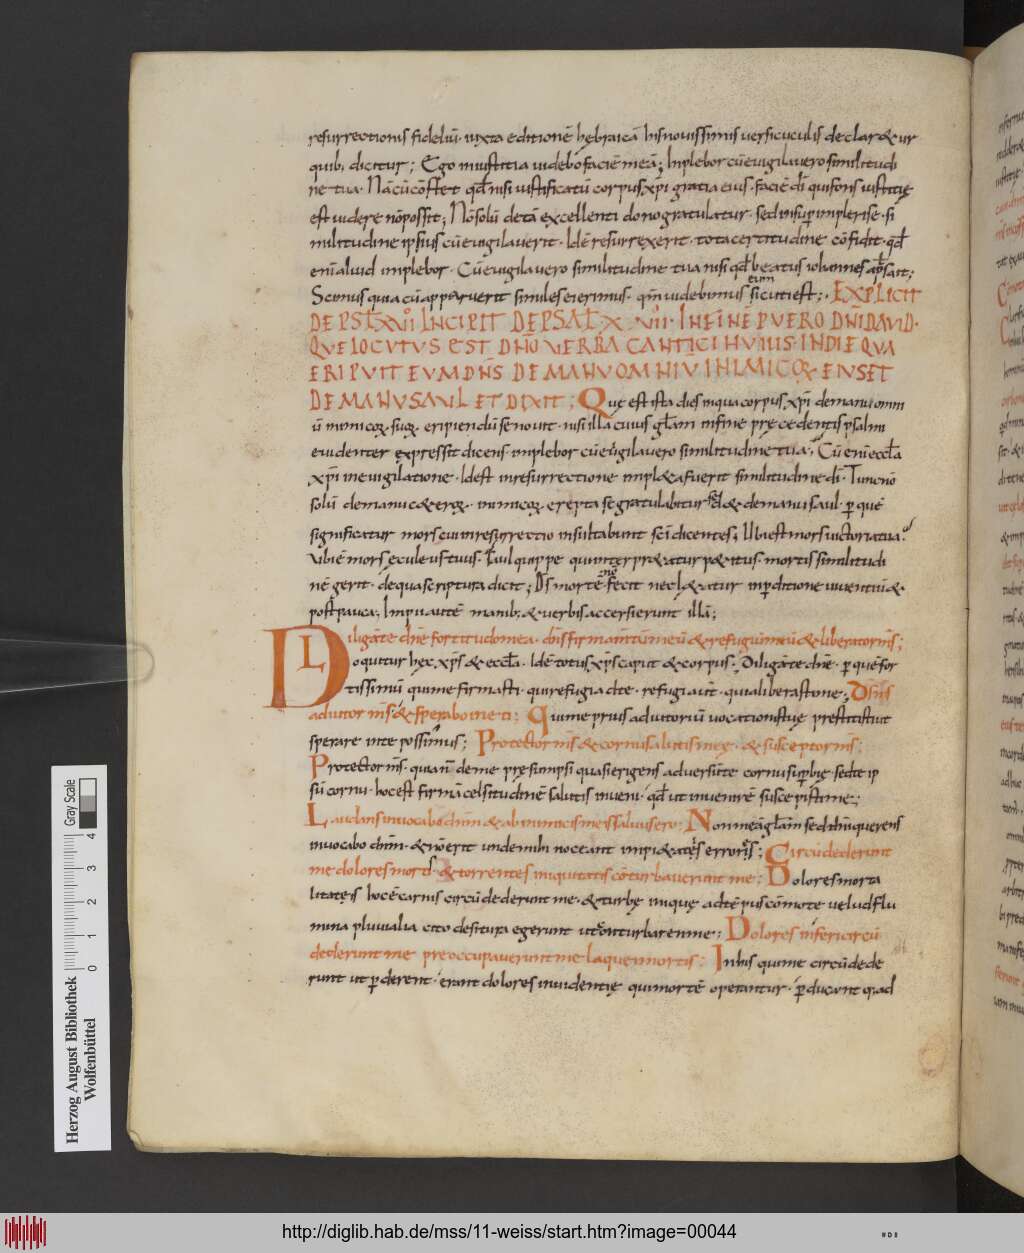 resurrectionis fideliū · iuxta editionē hębraicā hisnouissimis uersiculis declar&ur
quib; dicitur; Ego iniustitia uidebo faciē meā; Inplebor cū euigilauero similitudi
ne tua · Nā cū cōstet qđ nisi iustificatū corpus xp̄i gratia eius · faciē dī qui fons iustitię
est uidere nō possit; Nō solū de tā excellenti dono gratulatur · sed insup implerise · si
militudine ipsius cū euigilauerit · Idē resurrexerit · tota certitudine cōfidit · qđ
eni aliud inplebor · Cū euigilauero similitudine tua nisi qđ beatus iohannes apłs ait;
Scimus quia cū apparuerit similes ei erimus · qm̄ uidebimus eum sicuti est; EXPLICIT
DE PSL XVI INCIPIT DE PSAL X VII · IN FINĒ PUERO DNI DAVID ·
QUE LOCUTUS EST DNO VERBA CANTICI HUIUS · IN DIE QUA
ERIPUIT EUM DNS DE MANU OMNIU INIMICOR EIUS ET
DE MANU SAUL ET DIXIT; Quę est ista dies in qua corpus xp̄i de manu omni
ū inimicoꝝ suoꝝ eripiendū se nouit · nisi illa cuius głam in fine pręcedentis psalmi
euidenter expressit dicens · inplebor cū euigilauero similitudine tua; Cū eni eccła
xp̄i in euigilatione · Idest in resurrectione impl&a fuerit similitudine dī · Tunc nō
solū de manu c&eroꝝ · inimicoꝝ erepta se gratulabitur sed & de manu saul · p quē
significatur mors cui in resurrectio insultabunt sc̄i dicentes; Ubi est mors uictoria tua?
ubi ē mors aculeus tuus · Saul quippe qui interpr&atur p&itus · mortis similitudi
nē gerit · de qua scriptura dicit; Ds mortē non fecit nec l&atur in pditione uiuentiū &·
post pauca; Impii autē manib; & uerbis accersierunt illā;
Diligā te dn̄e fortitudo mea · dn̄s firmamtū meū & refugiū meū & liberator m̄s;
Loquitur hęc xp̄s & eccła · Idē totus xp̄s caput & corpus; Diligā te dn̄e · p quē for
tissimū qui me firmasti · qui refugi ad te · refugi aūt · quia liberasti me; Ds m̄s
adiutor m̄s & sperabo in eū; Qui me prius adiutoriū uocationis tuę prestitisti ut
sperare in te possimus; Protector m̄s & cornu salutis meę · & susceptor m̄s;
Protector m̄s · quia nī de me pręsumpsi quasi erigens aduersū te cornu supbię · sed te ip
sū cornu · hoc est firmā celsitudinē salutis inueni · qđ ut inuenirē suscepisti me;
Laudans inuocabo dn̄m & ab inimicis meis saluus ero; Non meā głam sed dn̄i querens
inuocabo dn̄m · & nō erit unde mihi noceant impi&atis errores; Circūdederunt
me dolores mortis & torrentes iniquitatis cōturbauerunt me; Dolores morta
litatęis hoc ē carnis circūdederunt me · & turbę iniquę ad tēpus cōmote uelud flu
mina pluuialia cito desitura egerunt ut cōnturbarent me; Dolores inferi circū
dederunt me preoccupauerunt me laquei mortis; In his qui me circūdede
runt ut pderent · erant dolores inuidentię qui mortē operantur · pducant q ad
Herzog August Bibliothek
Wolfenbüttel
0 1 2 3 4 Gray Scale
http://diglib.hab.de/mss/11-weiss/start.htm?image=00044